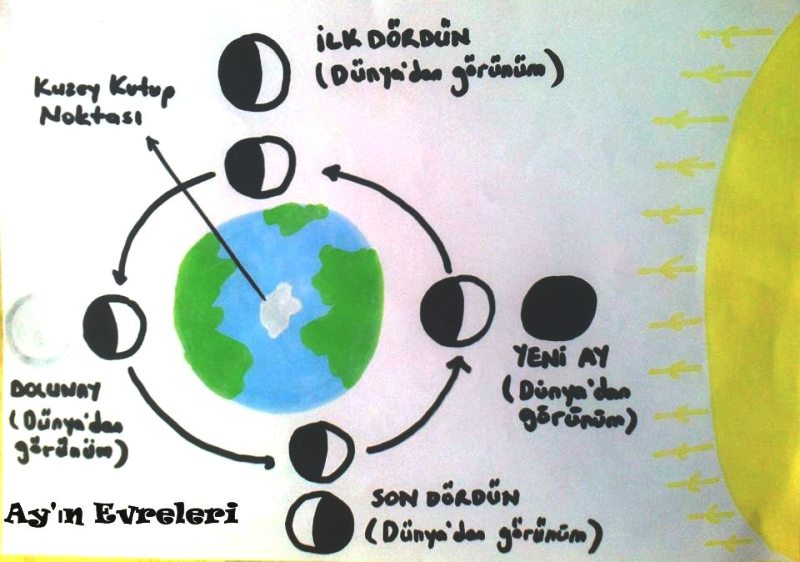 İLK DÖRDÜN
(Dünya'dan görünüm)
Kuzey Kutup
Noktası
YENİ AY
(Dünya'dan
görünüm)
DOLUNAY
(Dünya'dan
görünüm)
SON DÖRDÜN
(Dünya'dan görünüm)
Ay'ın Evreleri